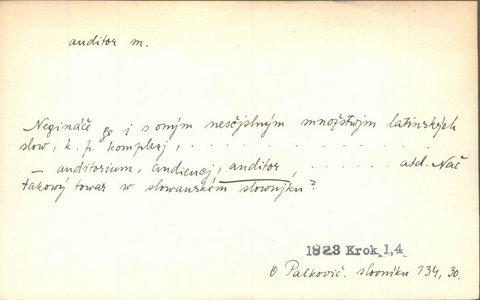 auditor m.
Negináče ge i s oným nesčjslným množstwjm latinských
slow, k. p. komplexj, . . . . . . . . . . . . . . . . . . .
— auditorium, audiencj, auditor, . . . . . . . atd. Nač
takowý towar w slowanském slownjku?
1823 Krok 1,4.
O Palkovič. slovníku 134, 30.